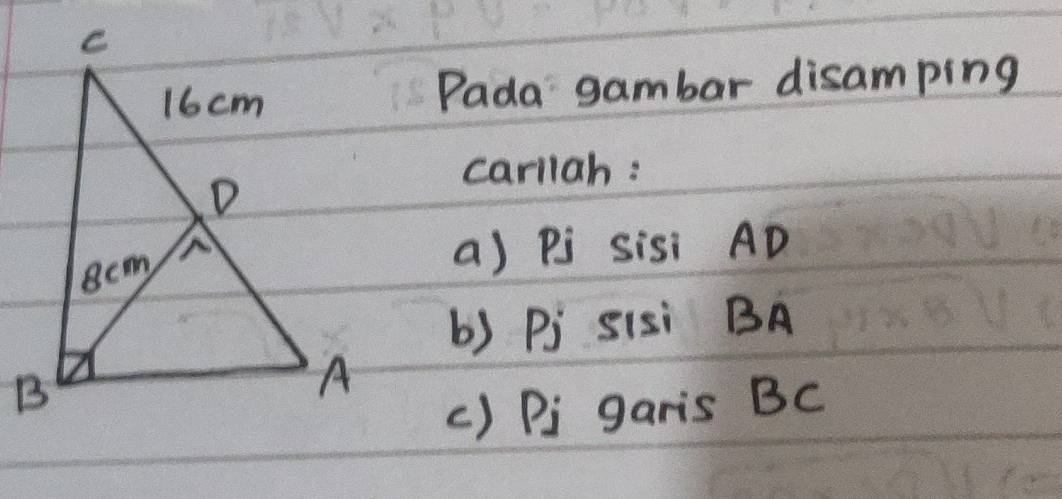 C
16cm
Pada gambar disamping
carilah :
D
a) Pj sisi AD
8cm
b) Pj sisi BA
B
A
c) Pj garis BC